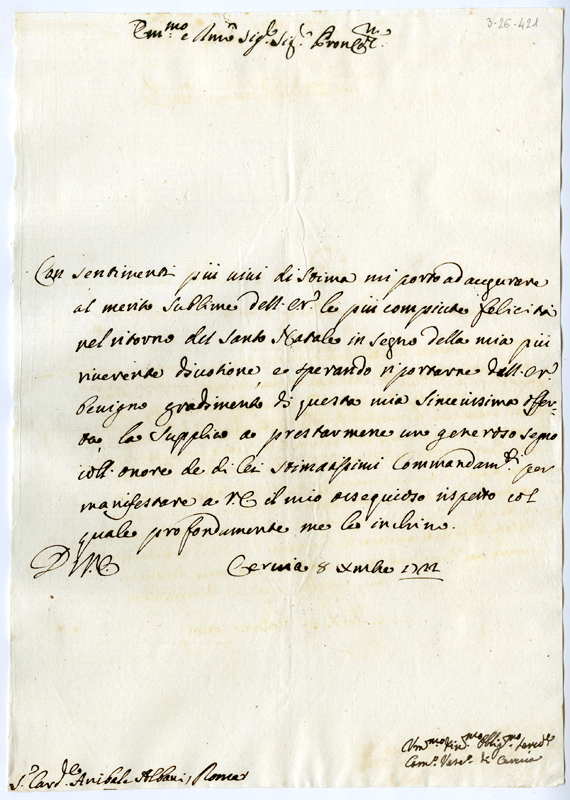 3-26-421
Em.mo e Rmo Sig.r Sig.r Pron Col.mo
Con sentimenti più vivi di stima mi porto ad augurare
al merito sublime dell'E.V. le più compiute felicità
nel ritorno del Santo Natale in segno della mia più
riverente divotione, e sperando riportarne dall'E.V.
benigno gradimento di questa mia sincerissima offer-
ta, la supplico a prestarmene un generoso segno
coll'onore de di lei stimatissimi Commandam.ti per
manifestare a V.E. il mio ossequioso rispetto col
quale profondamente me le inchino.
D V.E. Cervia 8 Xmbre 1721
Um.mo Div.mo Oblig.mo Serv.re
Cam.o Vesc.o di Cervia
S.r Card.le Anibale Albani, Roma